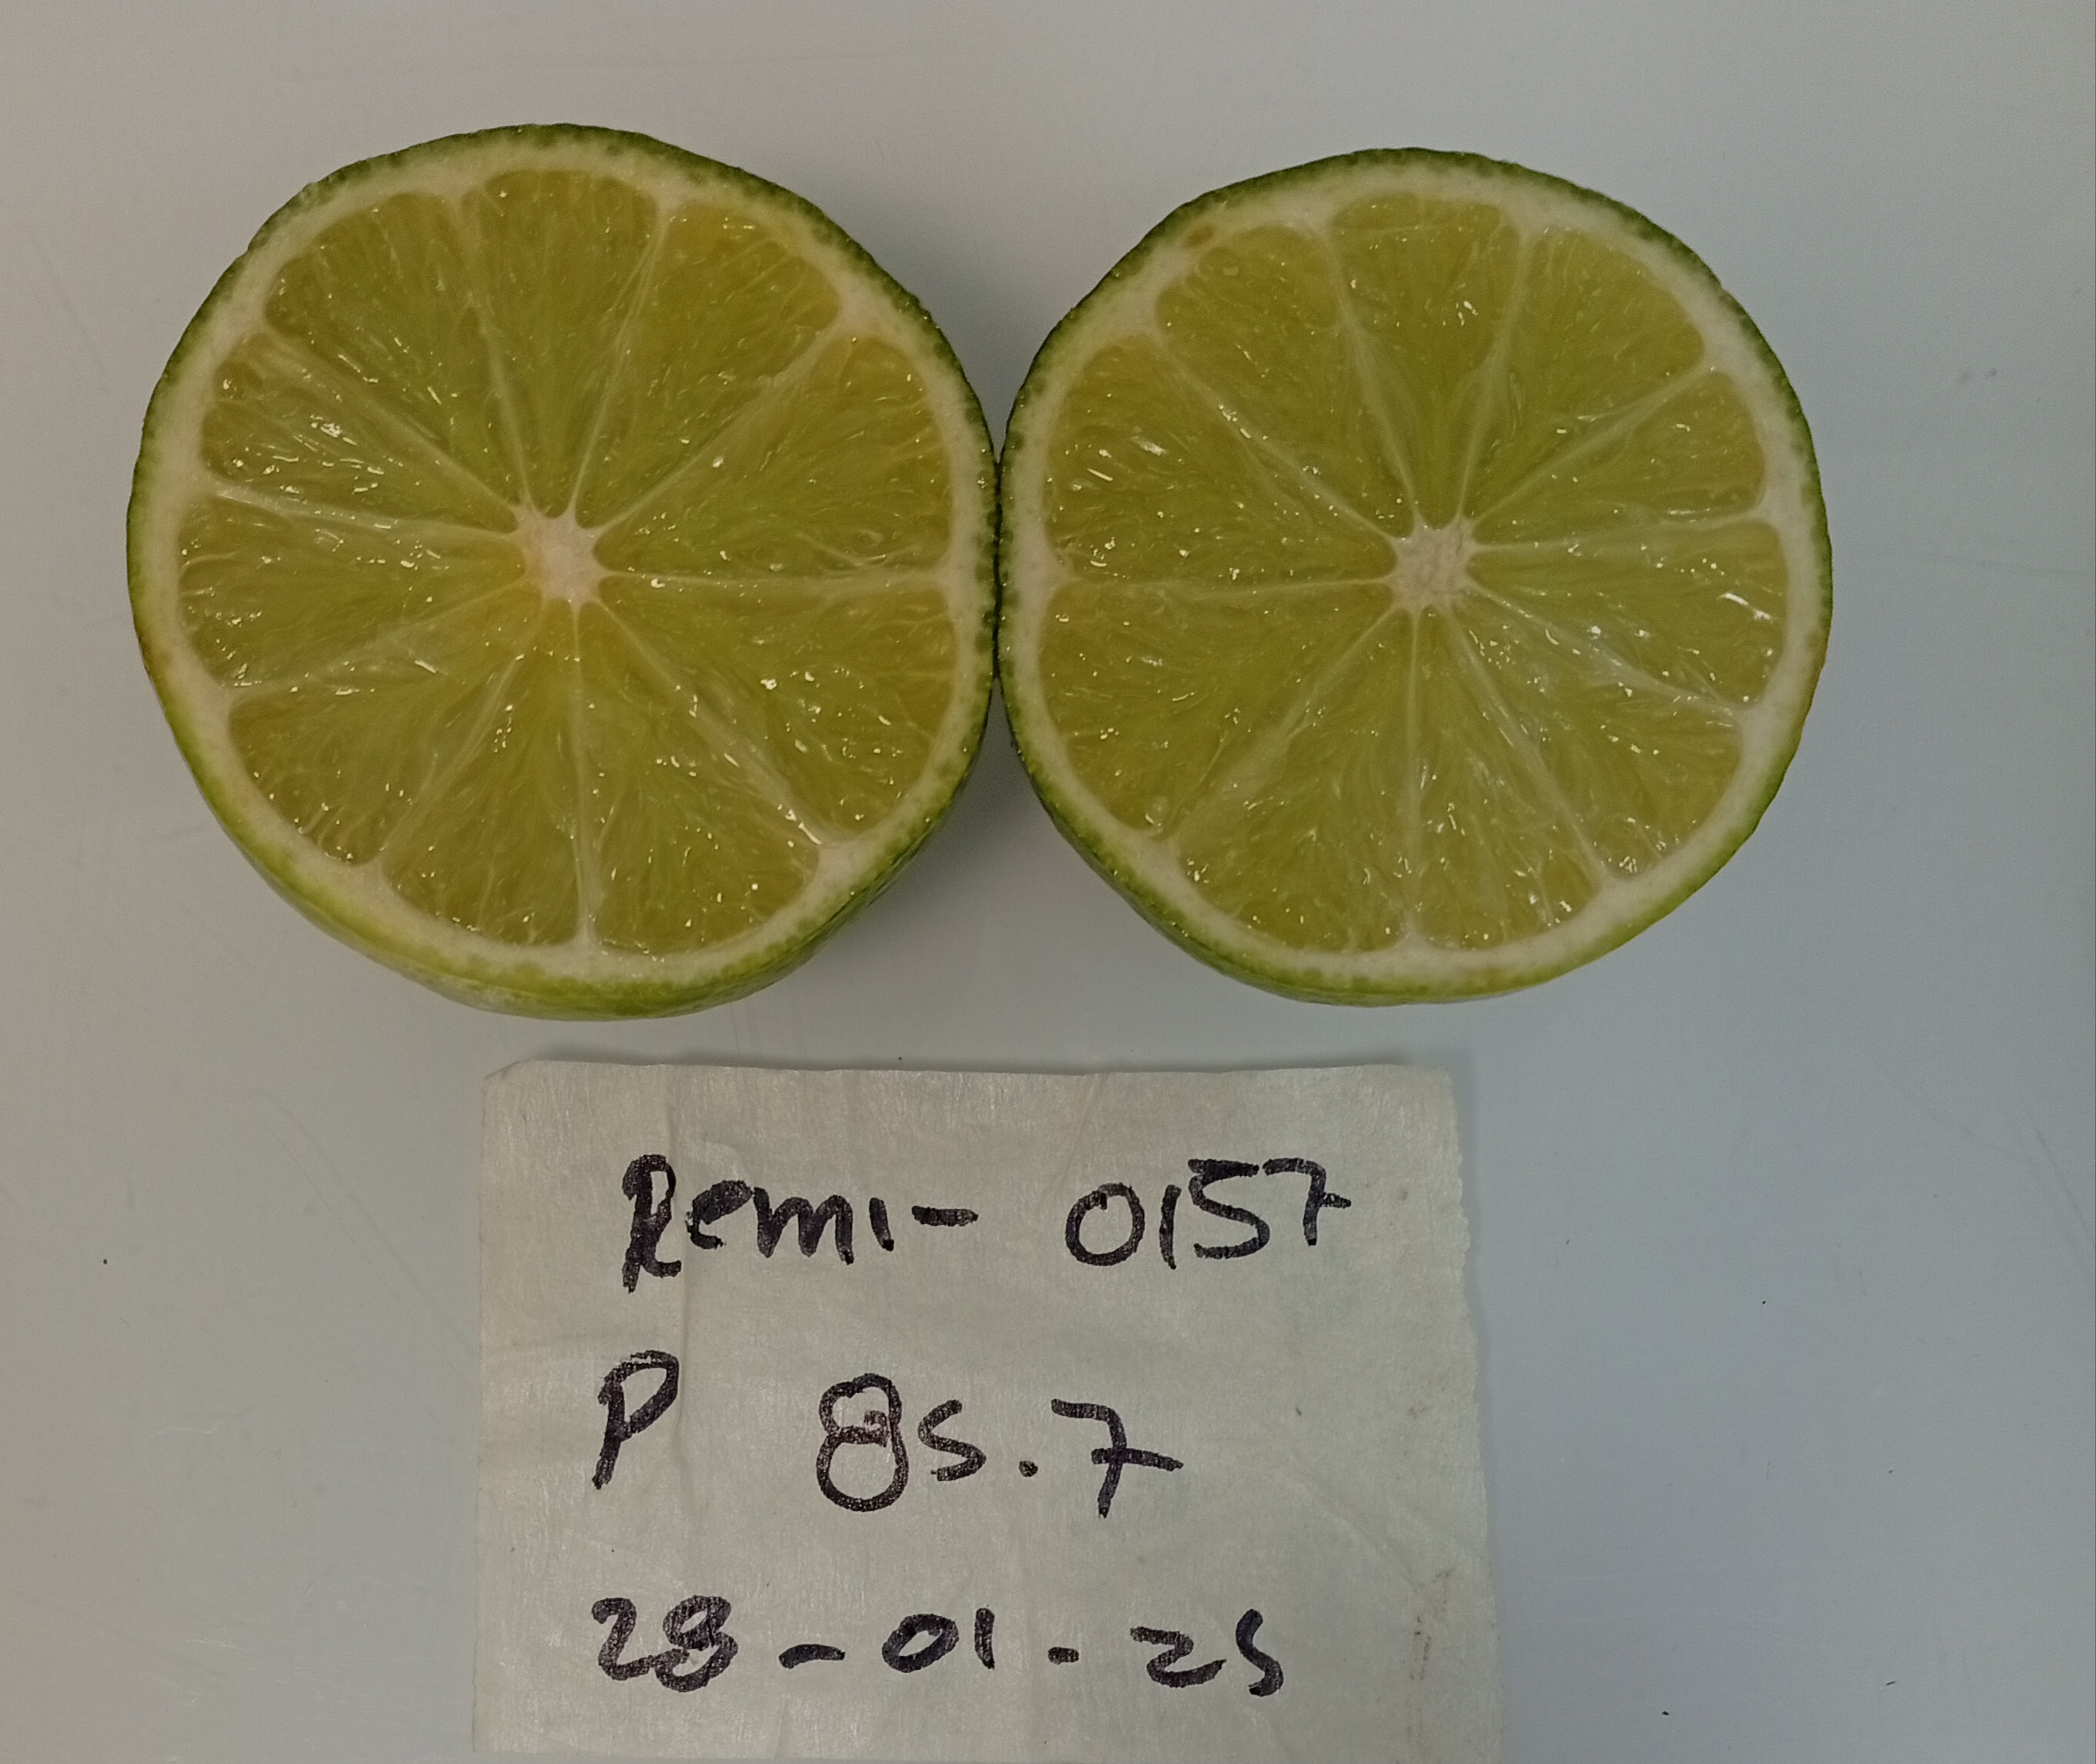 Remi- 0157
P 85.7
28-01-25